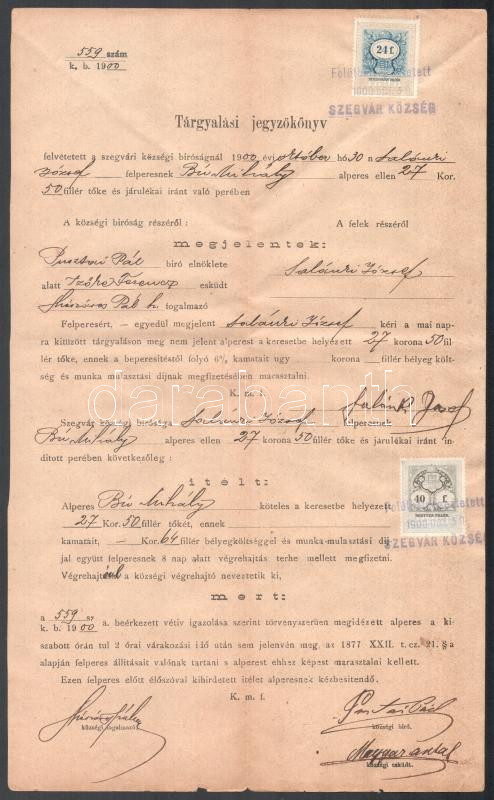 559 szám
k. b. 1900
24 f.
SZEGVÁR KÖZSÉG
Tárgyalási jegyzőkönyv
felvétetett a szegvári községi biróságnál 1900 évi október hó 30 n Salánki
József felperesnek Bú Mihály alperes ellen 27 Kor.
50 fillér tőke és járulékai iránt való perében
A községi biróság részéről: A felek részéről
megjelentek:
Pusztai Pál biró elnöklete Salánki József
alatt Ferencz esküdt
fogalmazó
Felperesért, — egyedül megjelent Salánki József kéri a mai nap-
ra kitüzött tárgyaláson meg nem jelent alperest a keresetbe helyézett 27 korona 50 fil-
lér tőke, ennek a beperesitéstől folyó 6% kamatait ugy korona fillér helyeg költ-
ség és munka mulasztási dijnak megfizetésében marasztalni.
K. m. f.
darabanth
Salánki József
Szegvár községi biróság Salánki József felperesnek
Bú Mihály alperes ellen 27 korona 50 fillér tőke és járulékai iránt in-
ditott perében következőleg:
itélt:
40 f.
SZEGVÁR KÖZSÉG
Alperes Bú Mihály köteles a keresetbe helyezett
27 Kor. 50 fillér tőkét, ennek
kamatait, — Kor. 64 fillér bélyegköltséggel és munka-mulasztási dij-
jal együtt felperesnek 8 nap alatt végrehajtás terhe mellett megfizetni.
Végrehajtóul a községi végrehajtó neveztetik ki,
mert:
a 559 sz.
k. b. 1900 a. beérkezett vétiv igazolása szerint törvényszerüen megidézett alperes a ki-
szabott órán tul 2 órai várakozási idő után sem jelenvén meg, az 1877 XXII. t. cz. 21. §-a
alapján felperes állitásait valónak tartani s alperest ehhez képest marasztalni kellett.
Ezen felperes előtt élőszóval kihirdetett itélet alperesnek kézbesitendő.
K. m. f.
községi fogalmazó
Pusztai Pál
községi biró.
Magyar Antal
községi esküdt.